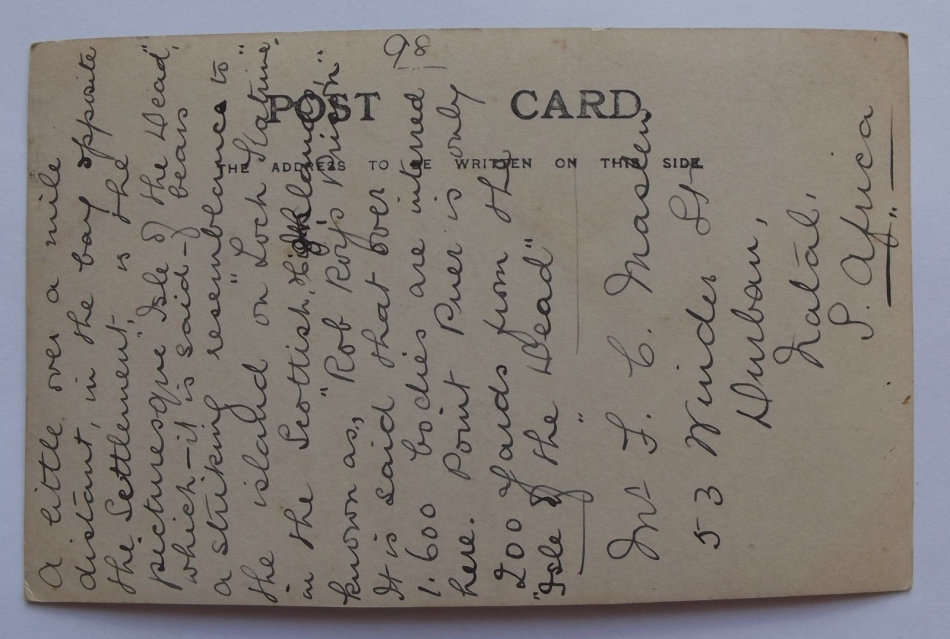 98
POST CARD
THE ADDRESS TO BE WRITTEN ON THIS SIDE.
A little over a mile
distant, in the bay opposite
the Settlement, is the
picturesque "Isle of the Dead",
which - it is said - bears
a striking resemblance to
the island on "Loch Katrine,"
in the Scottish Highlands,
known as, "Rob Roy's Prison"
It is said that over
1.600 bodies are interred
here. Point Puer is only
200 yards from the
"Isle of the Dead"
Mr F. C. Masters
53 Winder St
Durban,
Natal,
S. Africa